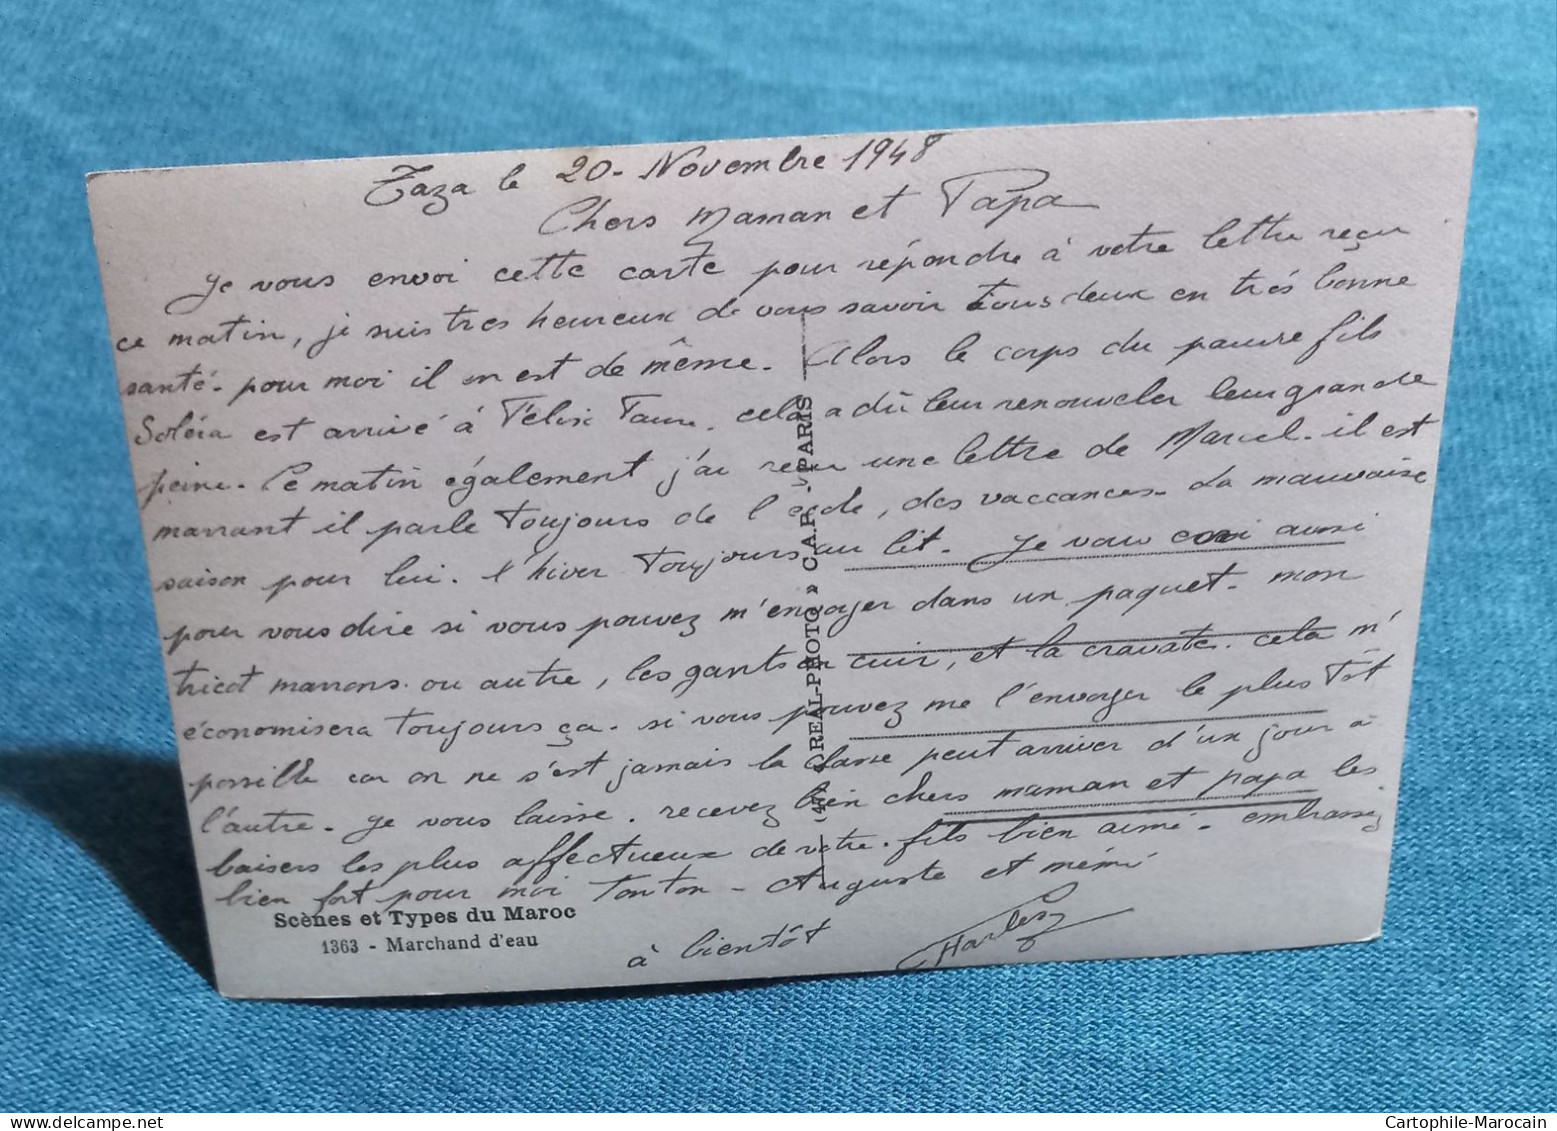 Taza le 20 - Novembre 1948
Chers Maman et Papa
Je vous envoi cette carte pour répondre à votre lettre reçu
ce matin, je suis tres heureux de vous savoir tous deux en très bonne
santé - pour moi il en est de même. Alors le corps du pauvre fils
Soléra est arrivé à Félix Faure. cela a dû leur renouveler leur grande
peine. Ce matin également j'ai reçu une lettre de Marcel. il est
marrant il parle toujours de l'école, des vaccances. La mauvaise
saison pour lui. l'hiver toujours au lit. Je vous aussi
pour vous dire si vous pouvez m'envoyer dans un paquet. mon
tricot marrons. ou autre, les gants en cuir, et la cravate. cela m'
économisera toujours ça. si vous pouvez me l'envoyer le plus tôt
possible car on ne s'est jamais la classe peut arriver d'un jour à
l'autre. Je vous laisse. recevez bien chers maman et papa les
baisers les plus affectueux de votre fils bien aimé. embrassez
bien fort pour moi Tonton - Auguste et mémé
à bientôt
Charles
Scènes et Types du Maroc
1363 - Marchand d'eau
« REAL-PHOTO » C.A.P. - PARIS
Cartophile-Marocain